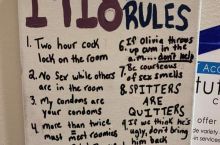 1718 RULES
1. Two hour cock
lock on the room
2. No Sex while others
are in the room
3. My condoms are
your condoms
4. more than twice
must meet roomies
6. If Olivia throws
up cum in the
a.m... don't help
7. Be courteous
of sex smells
8. SPITTERS
ARE
QUITTERS
9. If we think he's
ugly, don't bring
him back
Acc
de variety
vices